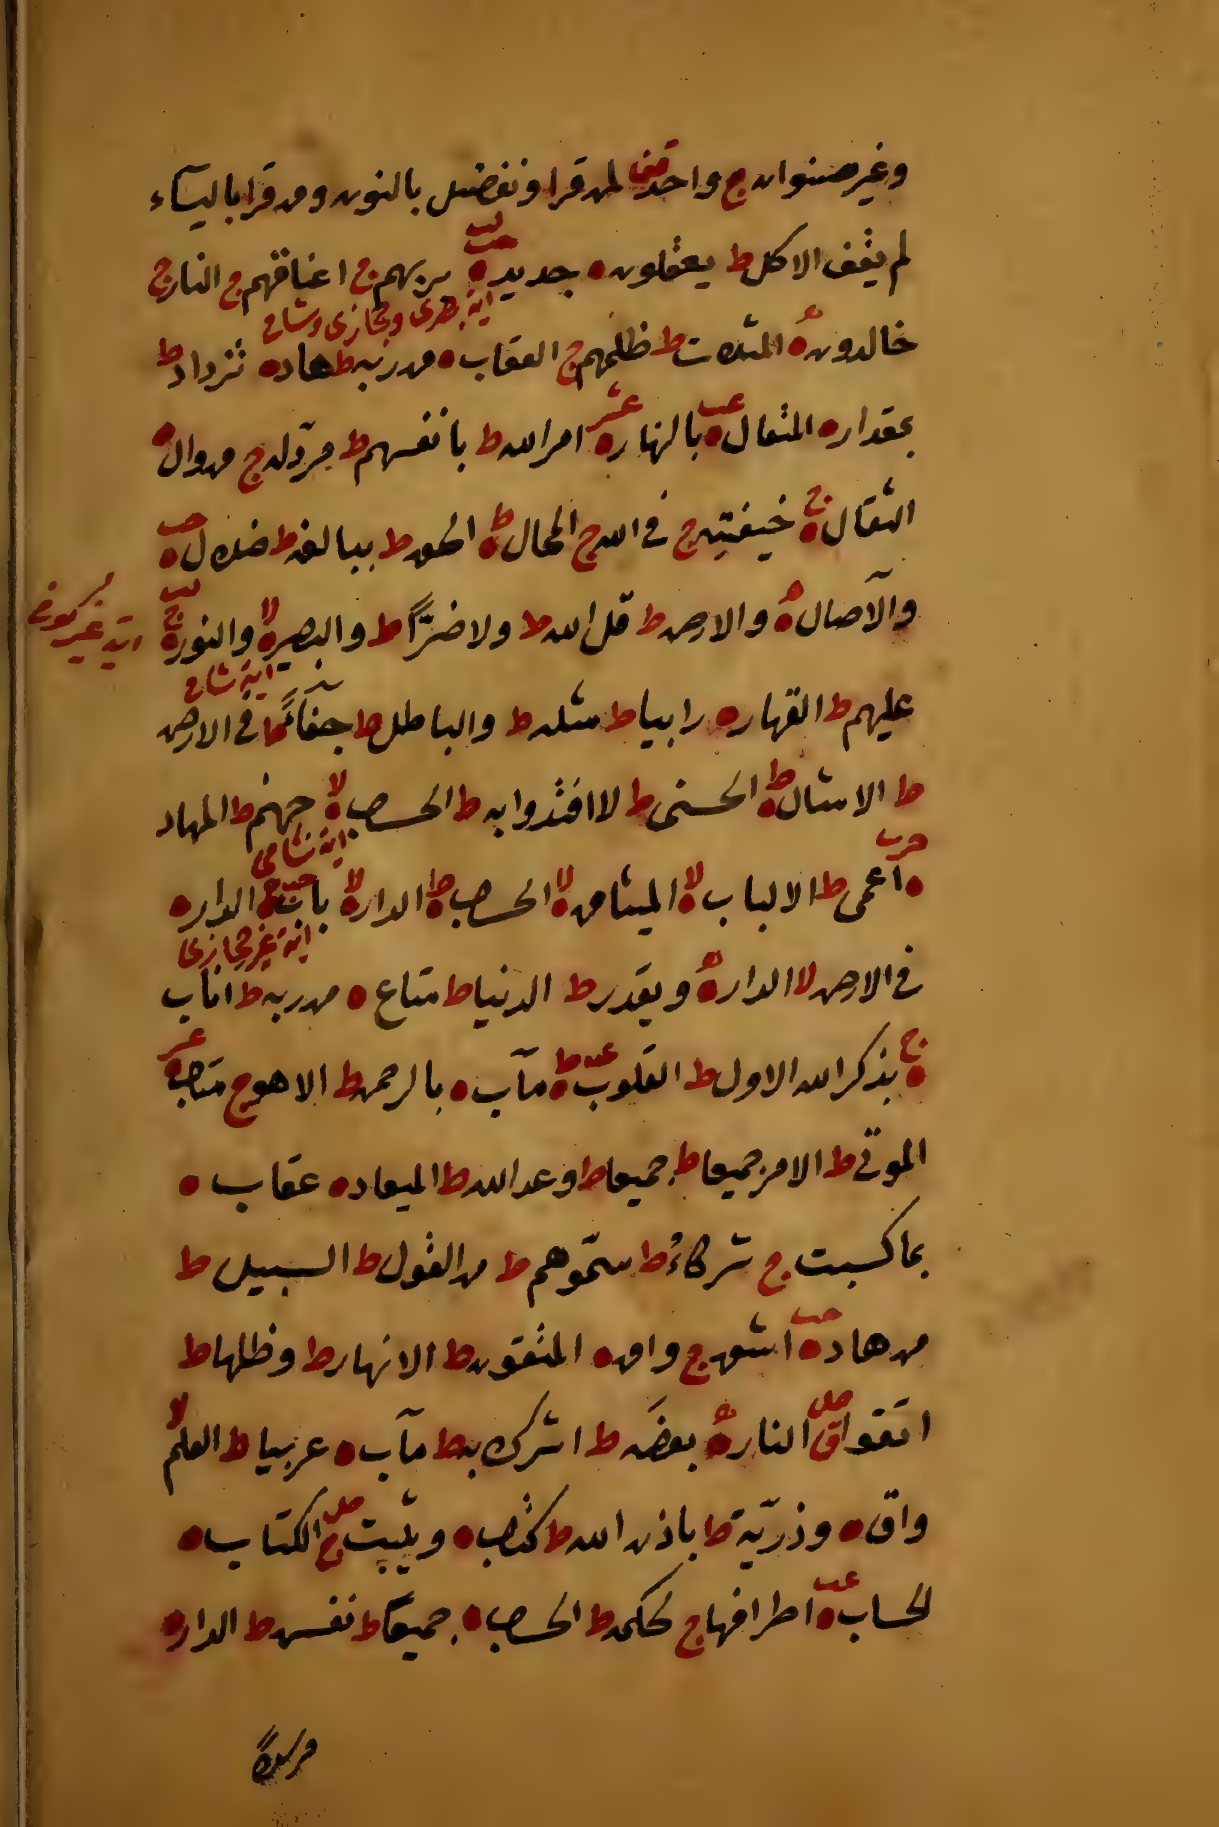 وغير صنوان ج واحد قف لمن قرا ونفضل بالنون ومن قرا بالياء
لم يقف الاكل ط يعقلون ه جديد ه بربهم ج اعناقهم ج النار ج
اية بصرى وحجازى وشامى
خالدون ه المثلات ط ظلمهم ج العقاب ه من ربه ط هاد ه تزداد ط
بمقدار ه المتعال ه بالنهار ه امر الله ط بانفسهم ط مردّ له ج من وال ه
الثقال ه ج خيفته ج فى الله ج المحال ه ط الحق ط ببالغه ط ضلال ه
والآصال ه والارض ط قل الله ط ولا ضرًّا ط والبصير ه لا والنور ه ج
اية غير كوفى
اية شامى
عليهم ط القهار ه رابيا ط مثله ط والباطل ط جفآءً ج فى الارض
ط الامثال ه ط الحسنى ط لافتدوا به ط الحساب ه لا جهنم ط المهاد
اية شامى
ه اعمى ط الالباب ه لا الميثاق ه لا الحساب ه ط الدار ه لا باب ه ج الدار ه
اية غير حجازى
فى الارض لا الدار ه ويقدر ط الدنيا ط متاع ه من ربه ط اناب
ه ج بذكر الله الاول ط القلوب ه ط مآب ه بالرحمن ط الا هو ج متاب ه
الموتى ط الامر جميعا ط جميعا ط وعد الله ط الميعاد ه عقاب ه
بما كسبت ج شركاءُ ط سمّوهم ط من القول ط السبيل ط
من هاد ه اشق ج واق ه المتقون ط الانهار ط وظلها ط
اتقوا ق صل النار ه بعضه ط اشرك به ط مآب ه عربيا ط العلم لا
واق ه وذريّة ط باذن الله ط كتاب ه ويثبت ج صل الكتاب ه
الحساب ه اطرافها ج لحكمه ط الحساب ه جميعًا ط نفس ط الدار ه